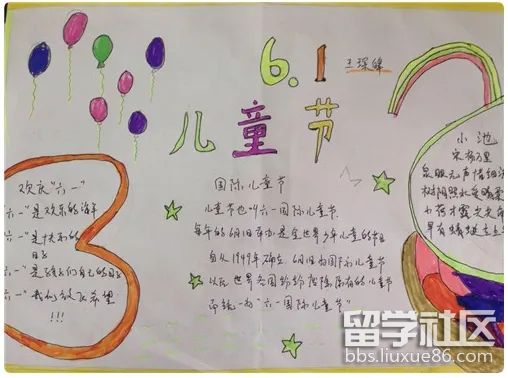 6.1
王琛皞
儿童节
欢庆“六一”
六一”是欢乐的海洋
六一”是快乐的
日子
六一”是我们自己的日子
六一”我们放飞希望
!!!
国际儿童节
儿童节也叫六一国际儿童节.
每年的6月1日举办是全世界少年儿童的节日
自从1949年确立.6月1日为国际儿童节
以后世界各国纷纷废除原有的儿童节
而统一为“六一国际儿童节”
小池
宋 杨万里
泉眼无声惜细流
树阴照水爱晴柔
小荷才露尖尖角
早有蜻蜓立上
留学社区
bbs.liuxue86.com